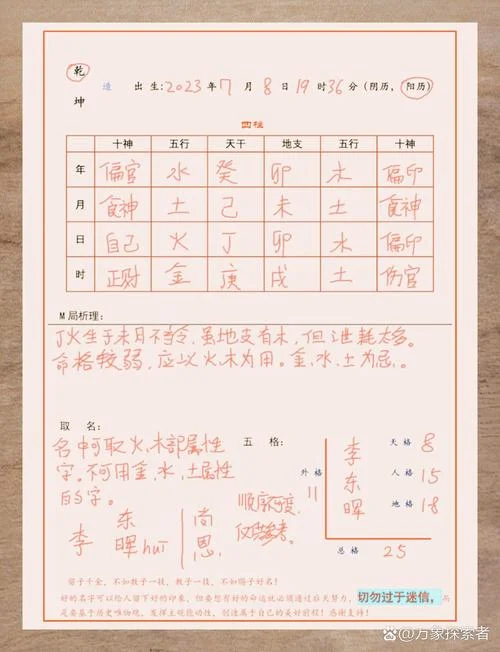 乾 造 出生:2023年7月8日19时36分(阴历,阳历)
坤
四柱
十神 五行 天干 地支 五行 十神
年 偏官 水 癸 卯 木 偏印
月 食神 土 己 未 土 食神
日 自己 火 丁 卯 木 偏印
时 正财 金 庚 戌 土 伤官
M局析理:
丁火生于未月不当令,虽地支有木,但泄耗太多。
命格较弱,应以火、木为用。金、水、土为忌。
取 名:
名中可取火、木部属性
字。不可用金、水、土属性
的字。
李 东晖huī 尚恩
顺序可变,
仅供参考。
五 格:
李 天格 8
东 人格 15
晖 地格 18
外格 11
总格 25
留子千金,不如教子一技,教子一技,不如赐子好名!
好的名字可以给人留下好的印象,但要想有好的命运就必须通过后天努力,
切勿过于迷信,
是要基于历史唯物观,发挥主观能动性,创造属于自己的美好前程!感谢支持!
@万象探索者